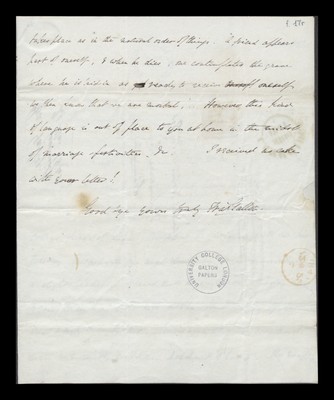 f. 17r
takes place as in the natural order of things. A friend appears
part of oneself, & when he dies, we contemplate the grave
where he is laid in as ready to receive oneself
so then know that we are mortal; However this kind
of language is out of place to you at home in the midst
of marriage festivities &c I received no cake
with your letter!
Good bye yours truly
UNIVERSITY COLLEGE LONDON
GALTON
PAPERS